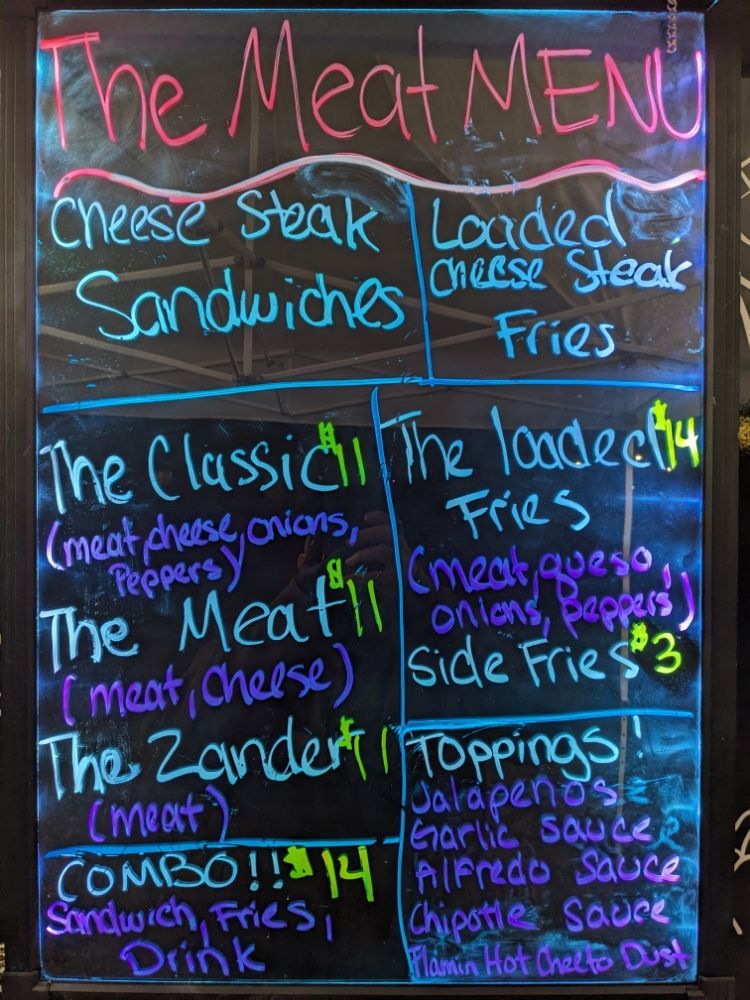 The Meat MENU
Cheese Steak
Sandwiches
Loaded
Cheese Steak
Fries
The Classic $11
(meat, cheese, onions,
Peppers)
The Meat $11
(meat, cheese)
The Zander $11
(meat)
COMBO!! $14
Sandwich, Fries,
Drink
The loaded $14
Fries
(meat, queso,
onions, peppers)
Side Fries $3
Toppings!
Jalapeños
Garlic Sauce
Alfredo Sauce
Chipotle Sauce
Flamin Hot Cheeto Dust